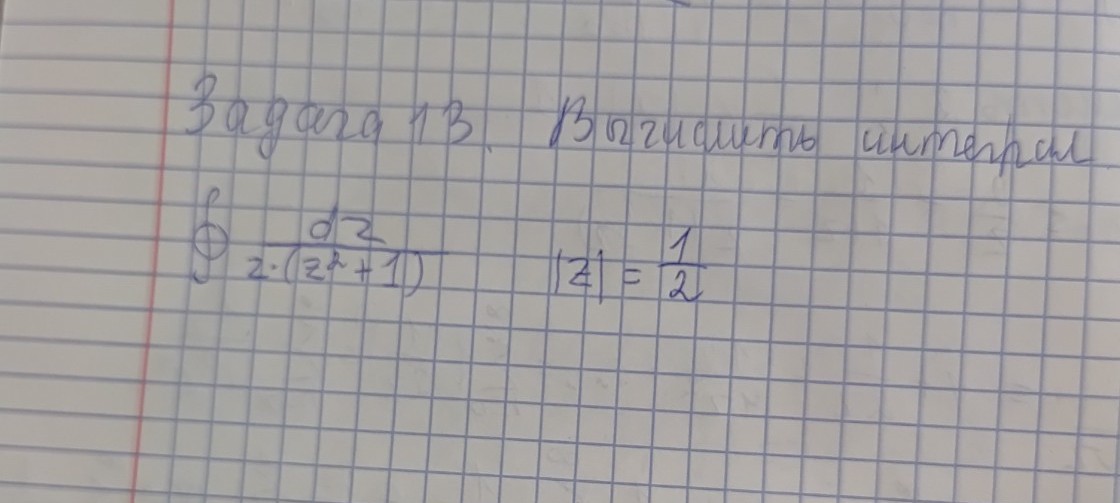 Задача 13. Вычислить интеграл
∮ dz / z·(z²+1)   |z| = 1/2